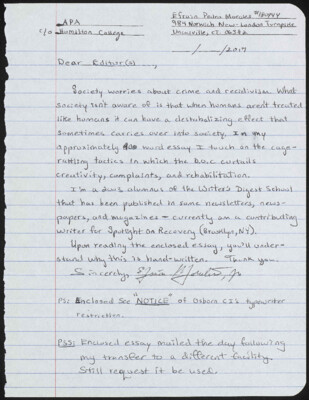 APA
c/o Hamilton College
Efrain
Morales
989 Norwich New-London Turnpike
Uncasville, CT. 06382
/ /2017
Dear Editor(s),
Society worries about crime and recidivism. What
society isn't aware of is that when humans aren't treated
like humans it can have a destabilizing effect that
sometimes carries over into society. In my
approximately word essay I touch on the cage-
rutting tactics in which the D.O.C curtails
creativity, complaints, and rehabilitation.
I'm a 2013 alumnus of the Writer's Digest School
that has been published in some newsletters, news-
papers, and magazines – currently am a contributing
writer for Spotlight on Recovery (Brooklyn, NY).
Upon reading the enclosed essay, you'll under-
stand why this is hand-written. Thank you.
Sincerely,
PS: Enclosed see "NOTICE" of Osborn C.I.'s typewriter
restriction.
PSS: Enclosed essay mailed the day following
my transfer to a different facility.
Still request it be used.